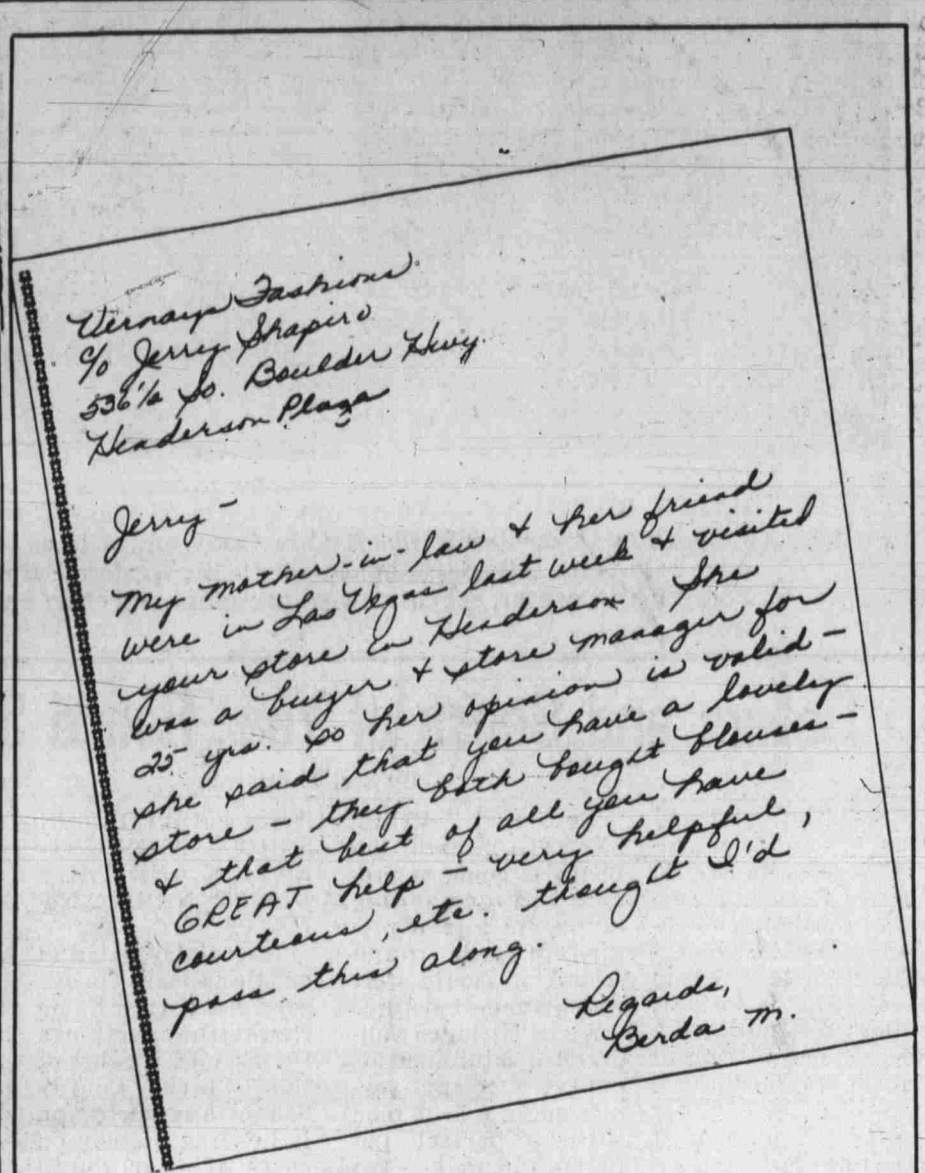 Vernays Fashions
c/o Jerry Shapiro
536½ So. Boulder Hwy.
Henderson Plaza
Jerry -
My mother-in-law & her friend
were in Las Vegas last week & visited
your store in Henderson She
was a buyer & store manager for
25 yrs. so her opinion is valid -
she said that you have a lovely
store - they both bought blouses -
& that best of all you have
GREAT help - very helpful,
courteous, etc. thought I'd
pass this along.
Regards,
Berda M.